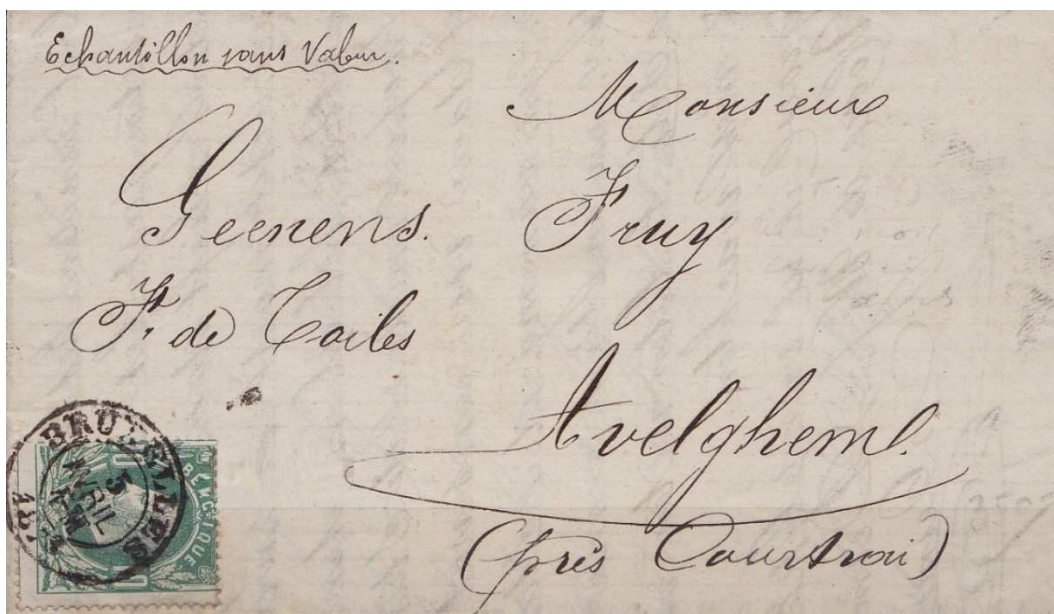 Echantillon sans Valeur.
Monsieur
Geenens. Fruy
Ft. de Toiles
Avelghem
(près Courtrai)
BRUXELLES
5
AVRIL
BELGIQUE